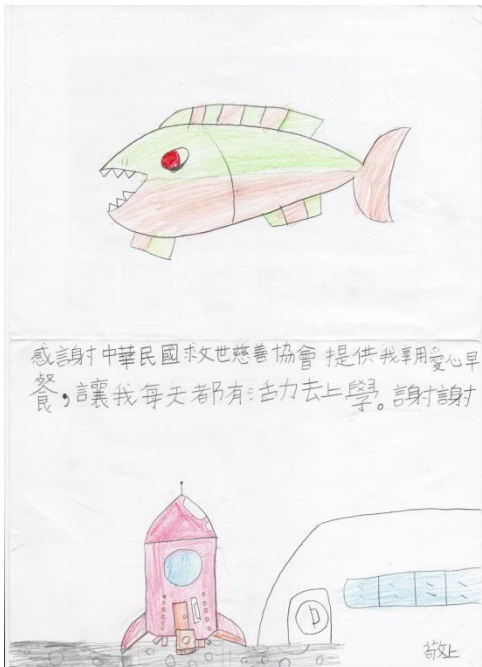 感謝中華民國救世慈善協會提供我享用愛心早
餐，讓我每天都有活力去上學。謝謝
敬上